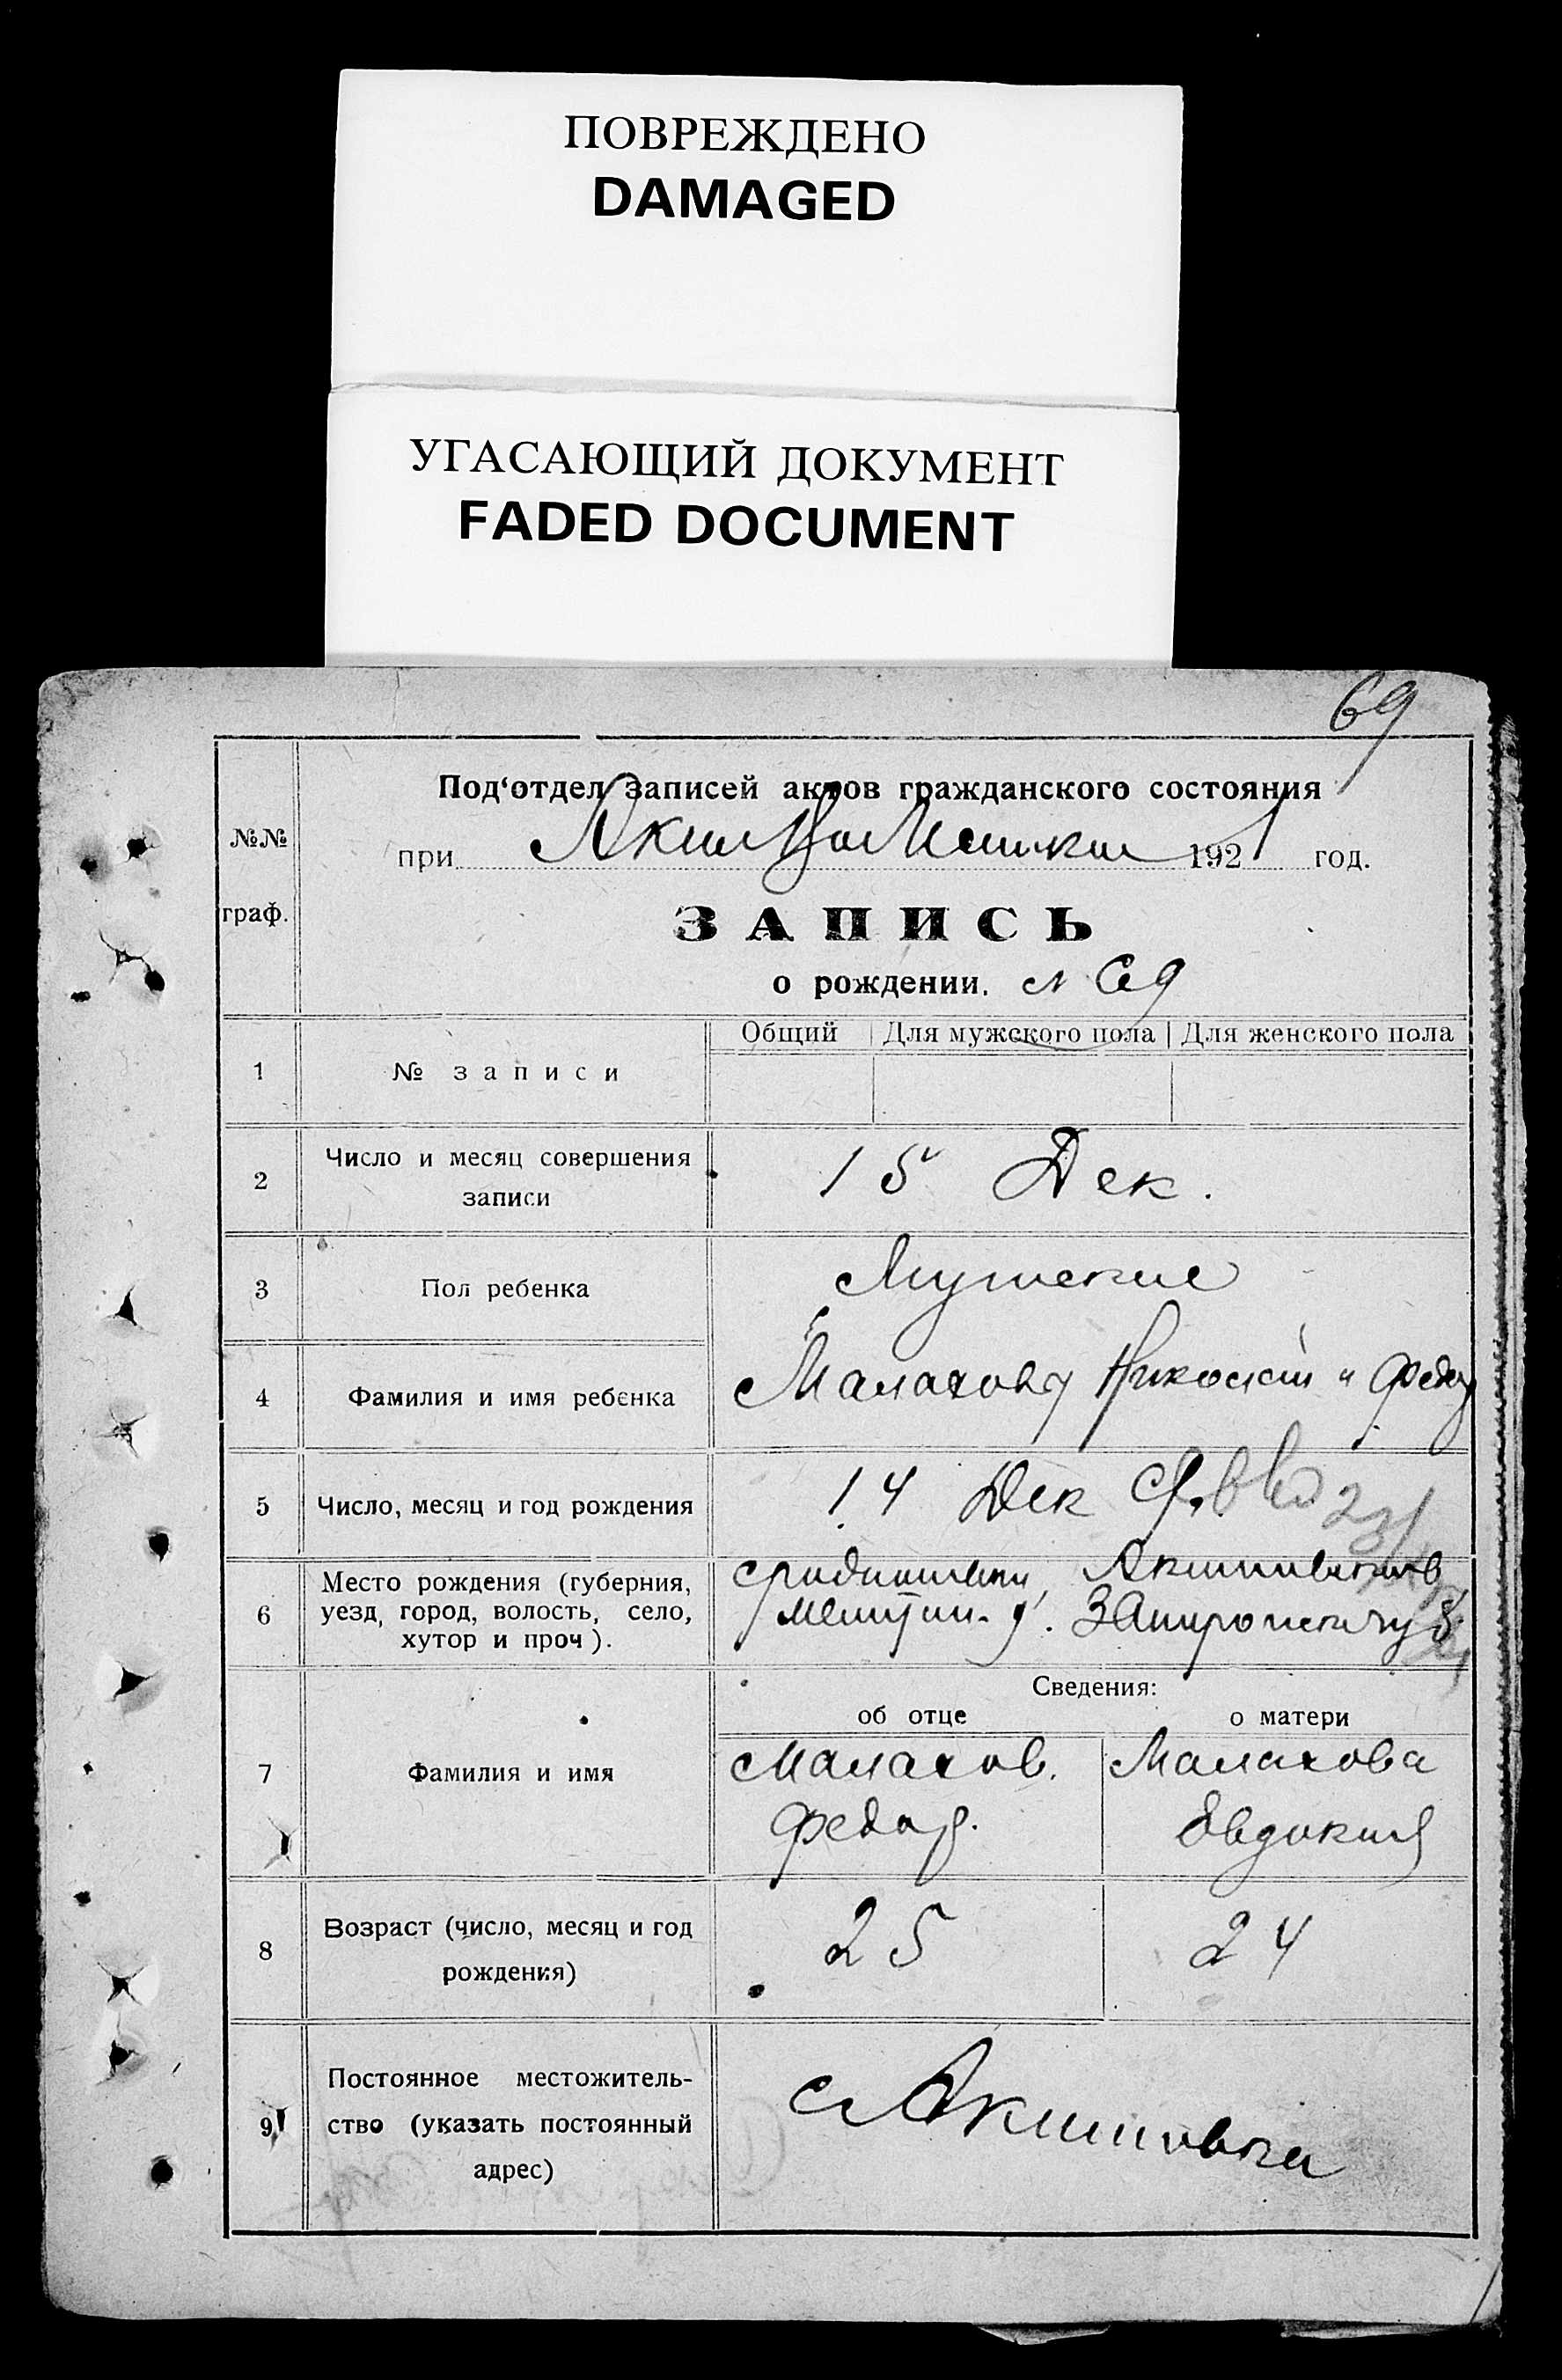 ПОВРЕЖДЕНО
DAMAGED
УГАСАЮЩИЙ ДОКУМЕНТ
FADED DOCUMENT
69
№№
граф.
Под‘отдел записей актов гражданского состояния
при 1921 год.
ЗАПИСЬ
о рождении. № 69
Общий Для мужского пола Для женского пола
1 № записи
2 Число и месяц совершения
записи
15 Дек.
3 Пол ребенка
Мужские
4 Фамилия и имя ребенка
Малахову
5 Число, месяц и год рождения
14 Дек
6 Место рождения (губерния,
уезд, город, волость, село,
хутор и проч).
Сведения:
об отце о матери
7 Фамилия и имя
Малахов. Малахова
Федор. Евдокия
8 Возраст (число, месяц и год
рождения)
25 24
9 Постоянное местожитель-
ство (указать постоянный
адрес)
с Акимовка